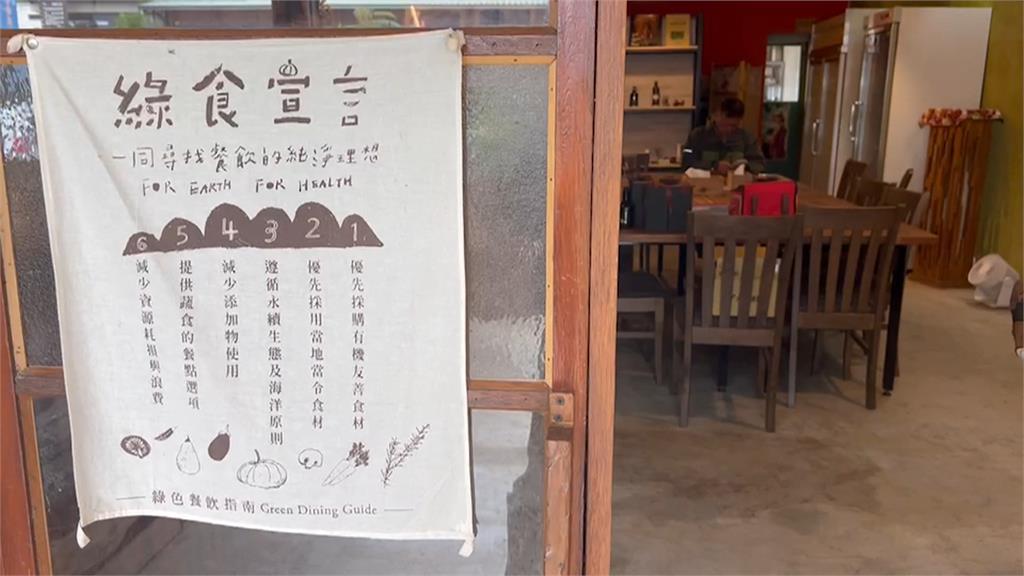 綠食宣言
一同尋找餐飲的純淨理想
FOR EARTH FOR HEALTH
6 5 4 3 2 1
優先採購有機友善食材
優先採用當地當令食材
遵循永續生態及海洋原則
減少添加物使用
提供蔬食的餐點選項
減少資源耗損與浪費
綠色餐飲指南 Green Dining Guide